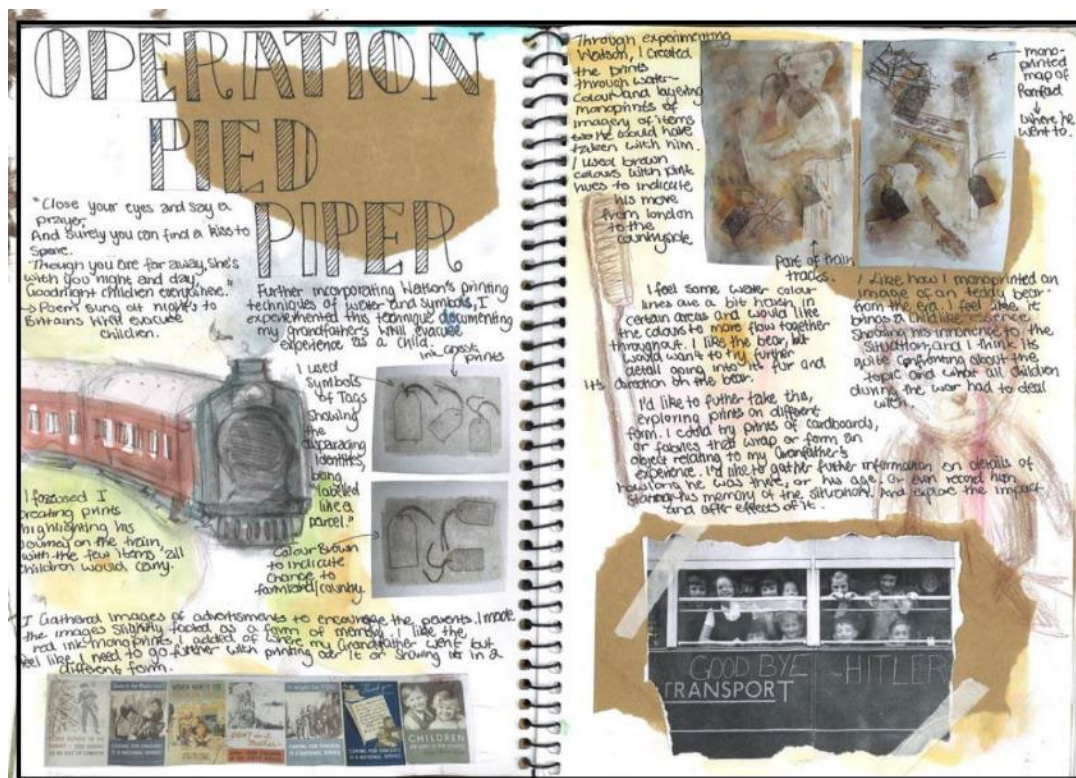 OPERATION
PIED
PIPER
"Close your eyes and say a
prayer,
And surely you can find a kiss to
spare.
Though you are far away, she's
with you night and day,
Goodnight children everywhere."
→ Poem sung at nights to
Britains WWII evacuee
children.
Further incorporating Watson's printing
techniques of water and symbols, I
experimented this technique documenting
my grandfather's WWII evacuee
experience as a child.
ink
prints
I used
symbols
of Tags
showing
the
identities
being
labelled
like a
parcel."
I focused I
creating prints
highlighting his
journey on the train,
with the few items, all
children would carry.
Colour Brown
to indicate
change to
farmland/country.
I Gathered images of advertisments to encourage the parents. I made
the images slightly faded as a form of memory. I like the
red ink monoprints I added of where my Grandfather went but
feel like I need to go further with printing over it or showing it in a
different form.
CARING FOR EVACUEES
IS A NATIONAL SERVICE
CHILDREN
Through experimenting
Watson, I created
the prints
through water-
colour and layering
monoprints of
imagery of items
he would have
taken with him.
I used brown
colours with pink
hues to indicate
his move
from london
to the
countryside.
mono-
printed
map of
↓
where he
went to.
Part of train
tracks.
I feel some water colour
lines are a bit harsh in
certain areas and would like
the colours to more flow together
throughout. I like the bear, but
would want to try further
detail going into its fur and
its direction on the bear.
I like how I monoprinted an
image of an teddy bear
from the era. I feel like it
brings a child like essence,
showing his innocence to the
situation, and I think its
quite confronting about the
topic and what all children
during the war had to deal
with.
I'd like to futher take this,
exploring prints on different
form. I could try prints of cardboards,
or fabrics that wrap or form an
object relating to my Granfather's
experience. I'd like to gather further information on details of
how long he was there, or his age. Or even record him
stating his memory of the situation. And explore the impact
and after effects of it.
GOOD BYE - HITLER
TRANSPORT